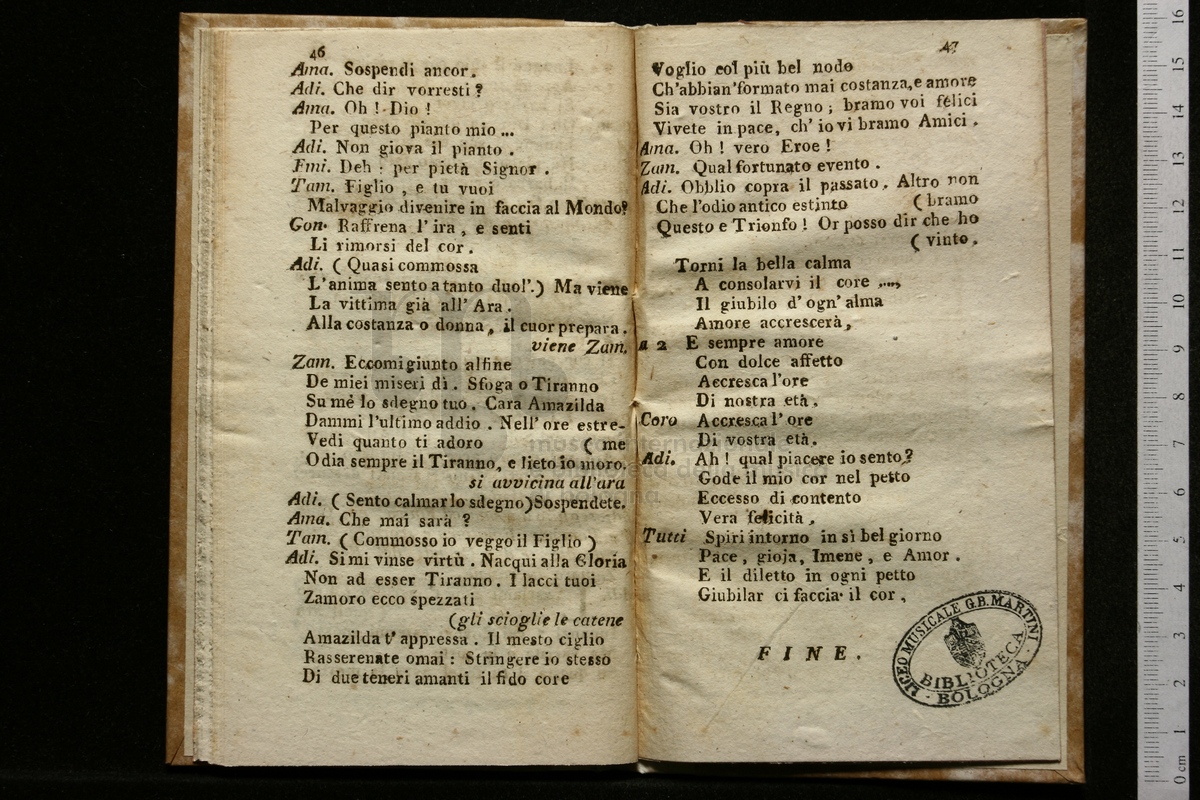 46
Ama. Sospendi ancor.
Adi. Che dir vorresti?
Ama. Oh! Dio!
Per questo pianto mio...
Adi. Non giova il pianto.
Emi. Deh: per pietà Signor.
Tam. Figlio, e tu vuoi
Malvaggio divenire in faccia al Mondo?
Gon. Raffrena l'ira, e senti
Li rimorsi del cor.
Adi. (Quasi commossa
L'anima sento a tanto duol'.) Ma viene
La vittima già all'Ara.
Alla costanza o donna, il cuor prepara.
viene Zam.
Zam. Eccomi giunto alfine
De miei miseri dì. Sfoga o Tiranno
Su mè lo sdegno tuo. Cara Amazilda
Dammi l'ultimo addio. Nell'ore estre-
Vedi quanto ti adoro (me
Odia sempre il Tiranno, e lieto io moro.
si avvicina all'ara
Adi. (Sento calmar lo sdegno) Sospendete.
Ama. Che mai sarà?
Tam. (Commosso io veggo il Figlio)
Adi. Si mi vinse virtù. Nacqui alla Gloria
Non ad esser Tiranno. I lacci tuoi
Zamoro ecco spezzati
(gli scioglie le catene
Amazilda t'appressa. Il mesto ciglio
Rasserenate omai: Stringere io stesso
Di due teneri amanti il fido core
47
Voglio col più bel nodo
Ch'abbian'formato mai costanza, e amore
Sia vostro il Regno; bramo voi felici
Vivete in pace, ch'io vi bramo Amici.
Ama. Oh! vero Eroe!
Zam. Qual fortunato evento.
Adi. Obblio copra il passato. Altro non
Che l'odio antico estinto (bramo
Questo e Trionfo! Or posso dir che ho
(vinto.
Torni la bella calma
A consolarvi il core ....,
Il giubilo d'ogn'alma
Amore accrescerà,
a 2 E sempre amore
Con dolce affetto
Accresca l'ore
Di nostra età.
Coro Accresca l'ore
Di vostra età.
Adi. Ah! qual piacere io sento?
Gode il mio cor nel petto
Eccesso di contento
Vera felicità,
Tutti Spiri intorno in sì bel giorno
Pace, gioja, Imene, e Amor.
E il diletto in ogni petto
Giubilar ci faccia il cor,
FINE.
LICEO MUSICALE G.B. MARTINI
BIBLIOTECA
· BOLOGNA ·
0 cm 1 2 3 4 5 6 7 8 9 10 11 12 13 14 15 16